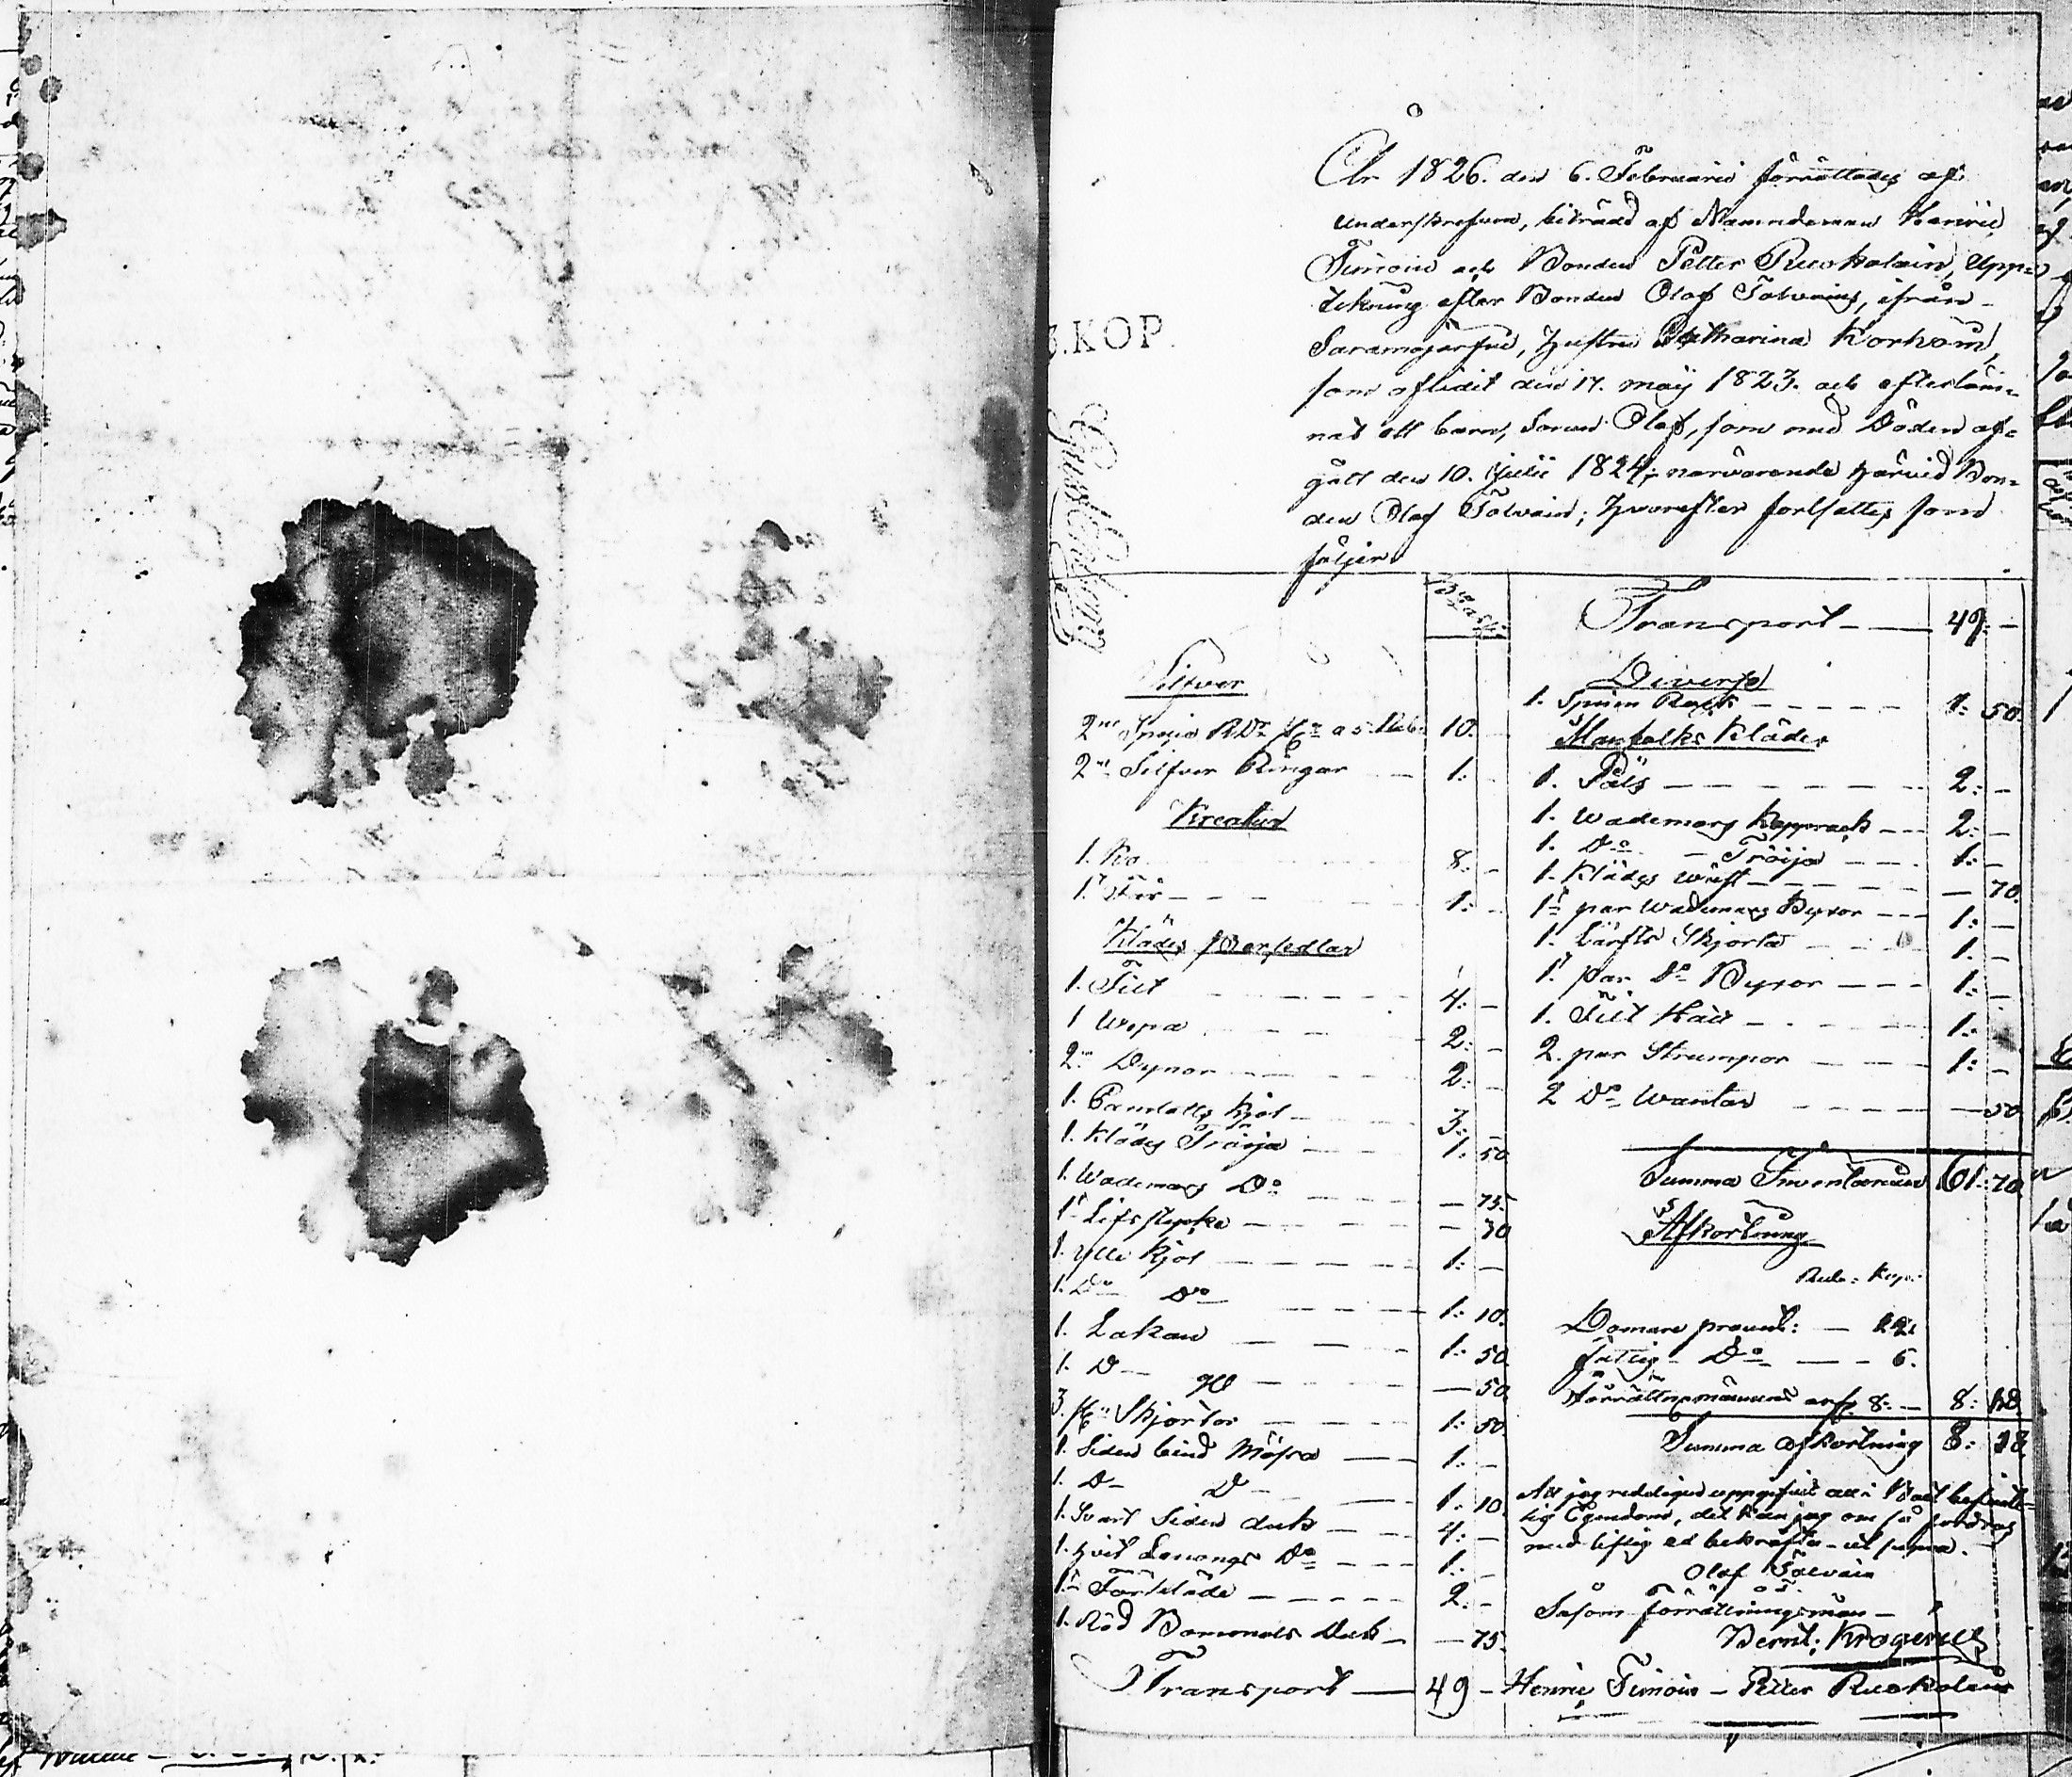 År 1826. den 6. Februarii förrättades af
underskrefven, biträdd af Nämndeman Henric
Timoin och Bonden Petter Ruokolain, Upp=
tekning efter Bonden Olof Tolvains, ifrån
Saramojärfvi, hustru Catharina Korhoin,
som aflidit den 17. maij 1823. och efterläm=
nat ett barn, Sonen Olof, som med Döden af=
gått den 10. Julii 1824; närvarande härvid Bon=
den Olof Tolvain; hvarefter fortsattes som
följer.
KOP.
Silfver
2ne Specie RDr a 5. Rub. 10.
2ne Silfver Ringar 1:
Kreatur
1. Ko 8: -
1. Får 1: -
Klädes Persedlar
1. Filt 4: -
1 Wepa 2: -
2ne Dynor 2: -
1. Camlotts Kjol 3: -
1. Klädes Tröija 1: 50
1. Wademars Do - 75.
1. Lifstycke - 30
1. Ylle Kjol 1: -
1. Do Do 1: 10.
1. Lakan 1: 50.
1. D - 50.
3. st. Skjortor 1: 50.
1. Siden bind Mössa 1: -
1. D D 1: 10.
1. Svart Siden duk 4: -
1. hvit Do 1: -
1. Förkläde 2: -
1. Röd Bomouls Duk - 75.
Transport 49 -
Transport 49: -
Diverse
1. Spinn Rock 1: 50.
Mansfolks Kläder
1. Päls 2: -
1. Wademars Kapprock 2: -
1. Do Tröija 1: -
1. Klädes Wäst - 70.
1. par Wademars Byxor 1: -
1. Lärfts Skjorta 1. -
1. par Do Byxor 1: -
1. Filt Hatt 1: -
2. par Strumpor 1: -
2 Do Wantar - 50.
Summa Inventarium 61: 70
Afkortning
Rub: Kop:
Domare procent: 12.
fattig Do 6.
Förrättningsmännens arf. 8: 8: 18.
Summa afkortning 8: 18.
Att jag redeligen uppgifvit all i Boet befint=
lig Egendom, det kan jag om så fordras
med liflig ed bekräfta
Olof Tolvain
Såsom förrättningsmän
Bernt: Krogerus
Henric Timoin - Petter Ruokolain